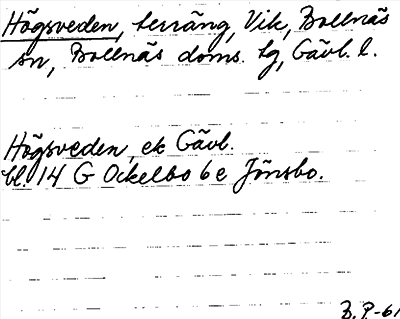 Högsveden, terräng, Vik, Bollnäs
sn, Bollnäs doms. tg, Gävl. l.
Högsveden, ek Gävl.
bl. 14 G Ockelbo 6e Jönsbo.
B.P-61